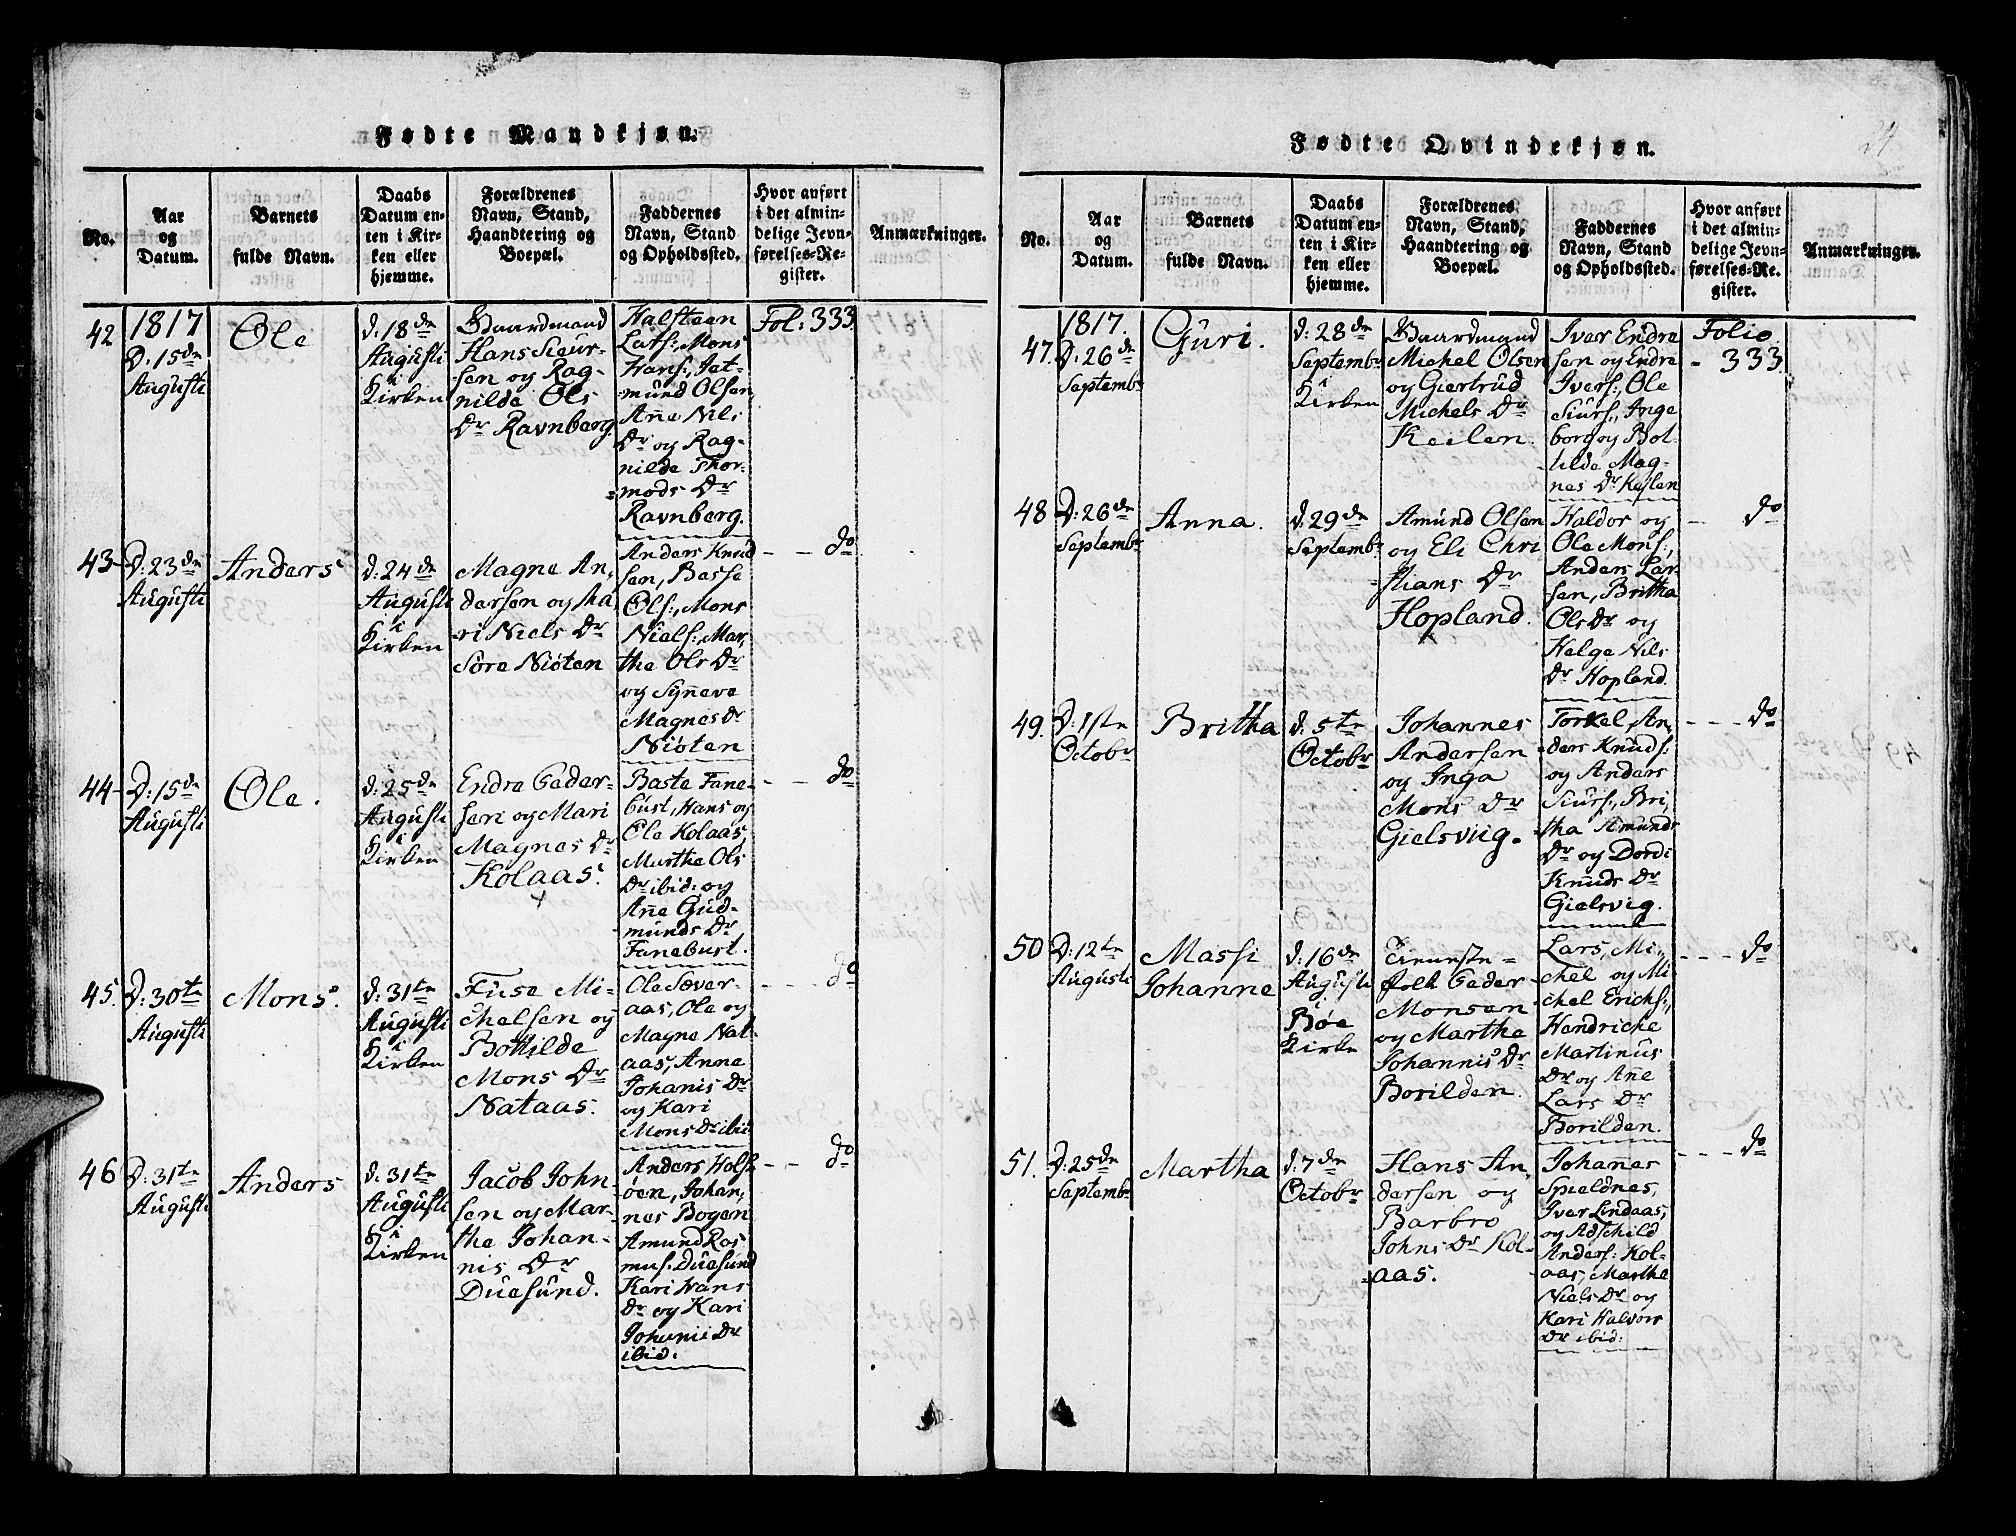 Fødte Mandkjøn.
No.
Aar
og
Datum.
Barnets
fulde Navn.
Daabs
Datum en-
ten i Kir-
ken eller
hjemme.
Forældrenes
Navn, Stand,
Haandtering og
Boepæl.
Faddernes
Navn, Stand
og Opholdssted.
Hvor anført
i det almin-
delige Jevn-
førelses-Re-
gister.
Anmærkninger.
42
1817
D: 15de
Augusti
Ole
d: 18de
Augusti
i
Kirken
Gaardmand
Hans Siur-
sen og Rag-
nilde Ols
Dr Ravnberg.
Halsteen
Lars:, Mons
Hans:, Jat-
mund Olsen
Anne Nils
Dr og Rag-
nilde Thor-
mods Dr
Ravnberg.
Fol: 333.
43
D: 23de
Augusti
Anders
d: 24de
Augusti
i
Kirken
Magne An-
dersen og Ma-
ri Niels Dr
Søre Niøten
Anders Knud
sen, Basse
Ols:, Mons
Niels:, Mar-
the Ols Dr
og Synneve
Magnes Dr
Niøten
- - do
44
D: 15de
Augusti
Ole.
d: 25de
Augusti
i
Kirken
Endre Peder-
sen og Mari
Magnes Dr
Kolaas.
Baste Fane-
bust, Hans og
Ole Kolaas,
Marthe Ols
Dr ibid: og
Anne Gud-
munds Dr
Fanebust.
- - do
45.
D: 30te
Augusti
Mons.
d: 31te
Augusti
i
Kirken
Fuse Mi-
chelsen og
Botilde
Mons Dr
Nataas.
Ole Sæver-
aas, Ole og
Magne Nat-
aas, Anne
Johanis Dr
og Kari
Mons Dr ibid
- - - do
46
D: 31te
Augusti
Anders
d: 31te
Augusti
i
Kirken
Jacob John
sen og Mar-
the Johan-
nis Dr
Duesund.
Anders Hols-
øen, Johan-
nes Bogen
Amund Ras
mus. Duesund
Kari Ivars
Dr og Kari
Johanni Dr
ibid.
- - do
Fødte Qvindekjøn.
24
No.
Aar
og
Datum.
Barnets
fulde Navn.
Daabs
Datum en-
ten i Kir-
ken eller
hjemme.
Forældrenes
Navn, Stand,
Haandtering og
Boepæl.
Faddernes
Navn, Stand
og Opholdssted.
Hvor anført
i det almin-
delige Jevn-
førelses-Re-
gister.
Anmærkninger.
47.
1817.
D: 26de
Septembr
Guri.
d: 28de
Septembr
i
Kirken
Gaardmand
Michel Olsen
og Giertrud
Michels Dr
Keilen.
Iver Endre
sen og Endre
Ivers:, Ole
Siurs:, Inge
borg og Bot
tilde Mag-
nes Dr Keilen
Folio
- 333
48
D: 26de
Septembr
Anna.
d: 29de
Septembr
Amund Olsen
og Eli Chri
stians Dr
Hopland.
Haldor og
Ole Mons:,
Anders Lar
sen, Britha
Ols Dr og
Helge Nils
Dr Hopland.
- do
49.
D: 1ste
Octobr
Britha
d: 5te
Octobr
Johannes
Andersen
og Inga
Mons Dr
Gielsviig.
Torkel, An-
ders Knuds:
og Anders
Siurs:, Bri-
tha Amunds
Dr og Dordi
Knuds Dr
Gielsvig.
- - - do
50
D: 12te
Augusti
Massi
Johanne
d: 16de
Augusti
i
Bøe
Kirke
Tieneste-
folk Peder
Monsen
og Martha
Johannis Dr
Borilden.
Lars, Mi-
chel og Mi
chel Erichs:,
Hendricke
Martinus
Dr og Anne
Lars Dr
Borilden.
- - - do
51.
D: 25de
Septembr
Martha
d: 7de
Octobr
Hans An-
dersen og
Barbro
Johns Dr Kol-
aas.
Johanes
Spieldnes,
Iver Lindaas,
og Adschild
Anders: Kol-
aas, Marthe
Niels Dr og
Kari Halvors
Dr ibid:
- - - do